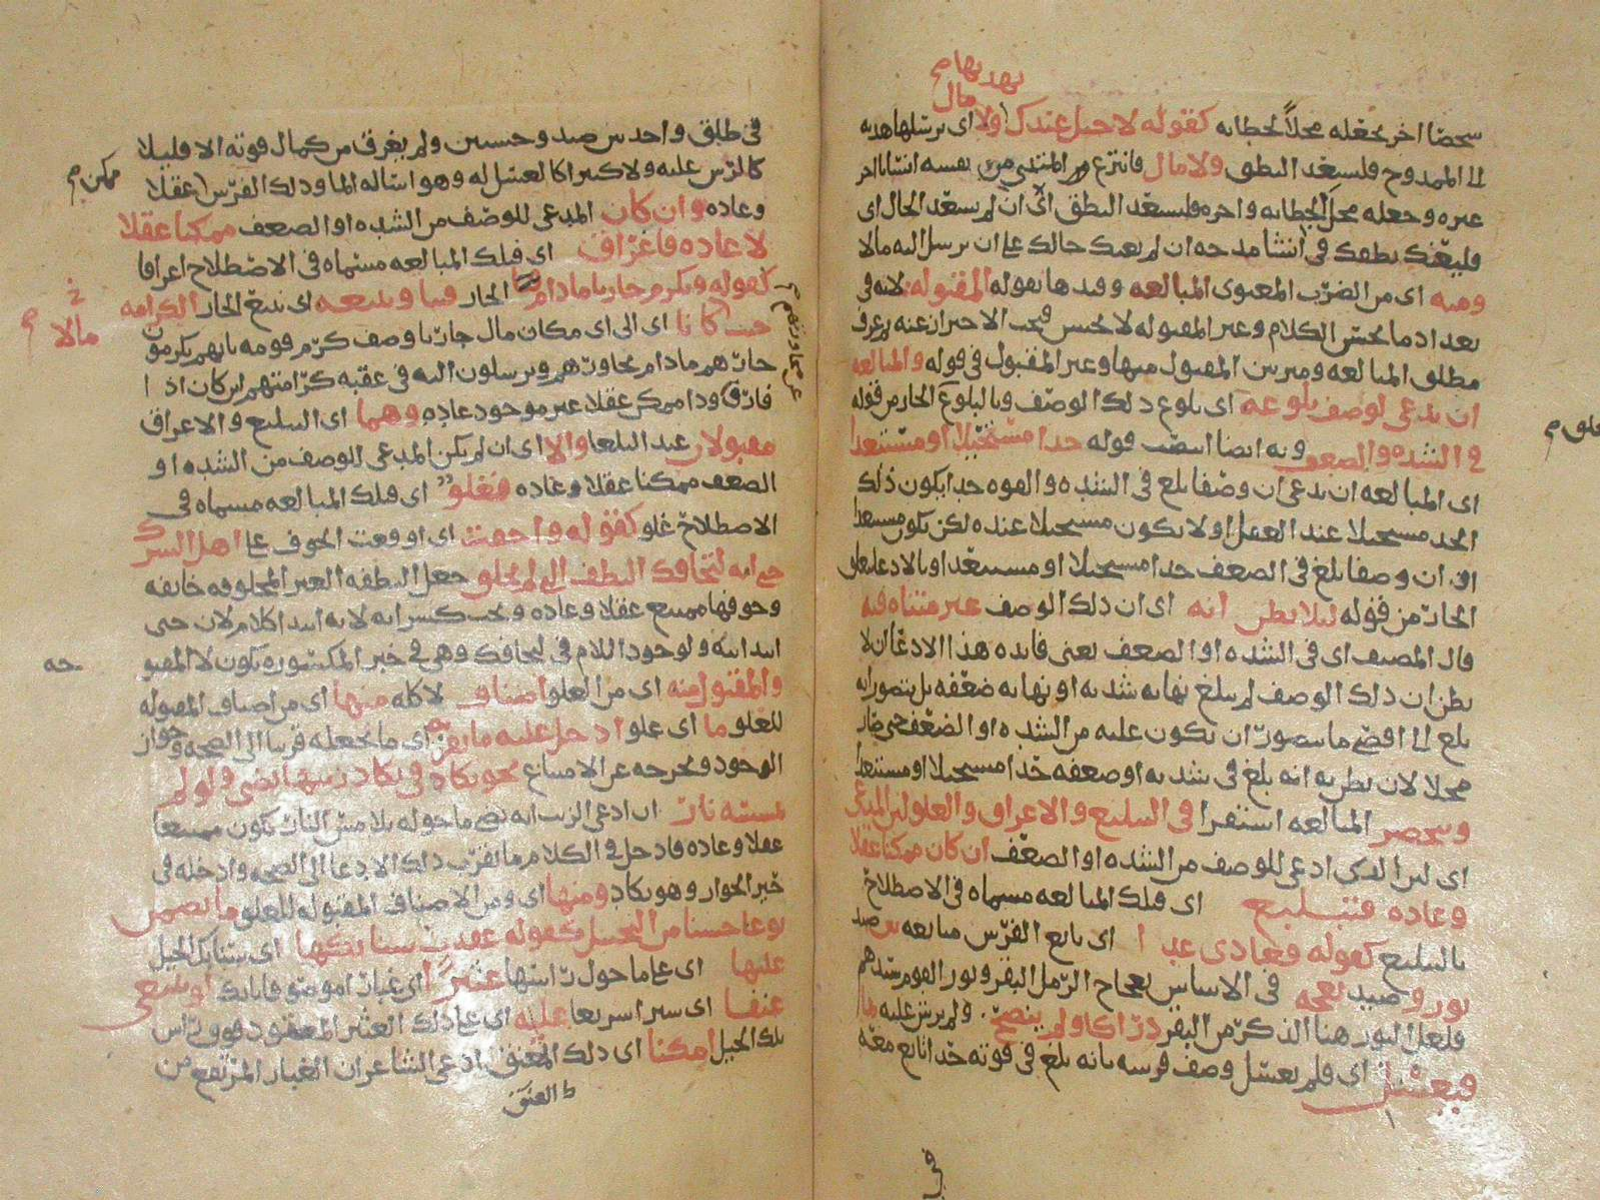 شخصا اخر يجعله محلا لخطابه كقوله لا خيل عندك ولا اى ترسلها هديه
مال
الى الممدوح فليسعد النطق ولا مال فانتزع من نفسه انسانا اخر
غيره وجعله محل الخطابه واخره فليسعد النطق اى ان لم يسعد الحال اى
فليعنك نطقك فى انشا مدحه ان لم يعنك حالك على ان ترسل اليه مالا
ومنه اى من الضرب المعنوى المبالغه وقيدها بقوله المقبوله لانه فى
تعداد ما يحسن الكلام وغير المقبوله لا يحسن فيجب الاحتراز عنه ثم عرف
مطلق المبالغه وميز بين المقبول منها وغير المقبول فى قوله والمبالغه
ان يدعى لوصف بلوغه اى بلوغ ذلك الوصف وبالبلوغ الجار من قوله
فى الشده والضعف وبه ايضا انتصب قوله حدا مستحيلا او مستبعدا
اى المبالغه ان يدعى ان وصفا بلغ فى الشده والقوه حدا يكون ذلك
الحد مستحيلا عند العقل او لا يكون مستحيلا عنده لكن يكون مستبعدا
او ان وصفا بلغ فى الضعف حدا مستحيلا او مستبعدا وبالادعا تعلق
الجار من قوله ليلا يظن انه اى ان ذلك الوصف غير متناه فيه
قال المصنف اى فى الشده او الضعف يعنى فايده هذا الادعا ان لا
يظن ان ذلك الوصف لم يبلغ نهايه شدته او نهايه ضعفه بل يتصور انه
بلغ الى اقصى ما يتصور ان يكون عليه من الشده او الضعف
محلا لان يظن به انه بلغ فى شدته او ضعفه حدا مستحيلا او مستبعدا
وينحصر المبالغه استقرا فى التبليغ والاغراق والغلو لان المدعى
اى لان الذى ادعى للوصف من الشده او الضعف ان كان ممكنا عقلا
وعاده فتبليغ اى فتلك المبالغه مسماه فى الاصطلاح
بالتبليغ كقوله فعادى عدا اى تابع الفرس متابعه بين صيد
ثور وصيد نعجه فى الاساس نعاج الرمل البقر وثور القوم سيدهم
فلعل الثور هنا الذكر من البقر دراكا ولم ينضح ولم يرش عليه ما
فيغسل اى فلم يغتسل وصف فرسه بانه بلغ فى قوته حدا تابع معه
فى طلق واحد بين صيد وحسين ولم يعرق من كمال قوته الا قليلا
كالرش عليه ولا كثيرا كالغسل له وهو اساله الما وذلك الفرس عقلا
ممكن
وعاده وان كان المدعى للوصف من الشده او الضعف ممكنا عقلا
لا عاده فاغراق اى فتلك المبالغه مسماه فى الاصطلاح اغراقا
كقوله ونكرم جارنا ما دام الجار فينا ونتبعه اى نتبع الجار الكرامه
حيث كانا اى الى اى مكان مال جارنا وصف كرم قومه بانهم يكرمون
مالا
جارهم ما دام يجاورهم ويرسلون اليه فى عقبه كرامتهم اين كان اذا
فارق وذا ممكن عقلا غير موجود عاده وهما اى التبليغ والاغراق
مقبولان عند البلغا والا اى ان لم يكن المدعى للوصف من الشده او
الضعف ممكنا عقلا وعاده فغلو اى فتلك المبالغه مسماه فى
الاصطلاح غلو كقوله واخفت اى اوقعت الخوف على اهل الشرك
حتى انه لتخافك النطف التى لم تخلق جعل النطفه الغير المخلوقه خايفه
وخوفها ممتنع عقلا وعاده ويجب كسر انه لانه ابتدا كلام لان حتى
ابتدائيه ولوجود اللام فى لتخافك وهى فى خبر المكسوره تكون لا المفتو
حه
والمقبول منه اى من الغلو اصناف لا كله منها اى من اصناف المقبوله
للغلو ما اى غلو ادخل عليه ما يقربه اى ما يجعله قريبا الى الصحه وجواز
الوجود ويخرجه عن الامتناع نحو يكاد فى يكاد زيتها يضى ولو لم
تمسسه نار ان ادعى الزيت انه يضى ما حوله بلا مس النار يكون ممتنعا
عقلا وعاده فادخل فى الكلام ما يقرب ذلك الادعا الى الصحه وادخله فى
حيز الجواز وهو يكاد ومنها اى ومن الاصناف المقبوله للغلو ما تضمن
نوعا حسنا من التخييل كقوله عقدت سنابكها اى سنابك الخيل
عليها اى على ما حول راسها عثيرا اى غبارا لو تبتغى
عنقا اى سيرا سريعا عليه اى على ذلك العثير المعقود فوق راس
تلك الخيل امكنا اى ذلك العنق ادعى الشاعر ان الغبار المرتفع من
ط العنق
فى